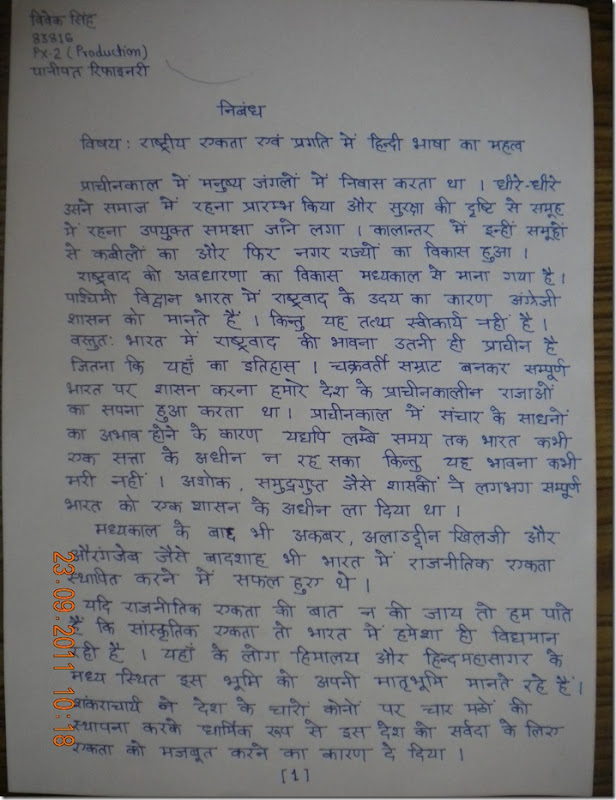 विवेक सिंह
83816
PX-2 (Production)
पानीपत रिफाइनरी
निबंध
विषय : राष्ट्रीय एकता एवं प्रगति में हिन्दी भाषा का महत्व
प्राचीनकाल में मनुष्य जंगलों में निवास करता था । धीरे-धीरे
उसने समाज में रहना प्रारम्भ किया और सुरक्षा की दृष्टि से समूह
में रहना उपयुक्त समझा जाने लगा । कालान्तर में इन्हीं समूहों
से कबीलों का और फिर नगर राज्यों का विकास हुआ ।
राष्ट्रवाद की अवधारणा का विकास मध्यकाल से माना गया है ।
पाश्चिमी विद्वान भारत में राष्ट्रवाद के उदय का कारण अंग्रेजी
शासन को मानते हैं । किन्तु यह तथ्य स्वीकार्य नहीं है ।
वस्तुतः भारत में राष्ट्रवाद की भावना उतनी ही प्राचीन है
जितना कि यहाँ का इतिहास । चक्रवर्ती सम्राट बनकर सम्पूर्ण
भारत पर शासन करना हमारे देश के प्राचीनकालीन राजाओं
का सपना हुआ करता था । प्राचीनकाल में संचार के साधनों
का अभाव होने के कारण यद्यपि लम्बे समय तक भारत कभी
एक सत्ता के अधीन न रह सका किन्तु यह भावना कभी
मरी नहीं । अशोक , समुद्रगुप्त जैसे शासकों ने लगभग सम्पूर्ण
भारत को एक शासन के अधीन ला दिया था ।
मध्यकाल के बाद भी अकबर , अलाउद्दीन खिलजी और
औरंगजेब जैसे बादशाह भी भारत में राजनीतिक एकता
स्थापित करने में सफल हुए थे ।
यदि राजनीतिक एकता की बात न की जाय तो हम पाते
हैं कि सांस्कृतिक एकता तो भारत में हमेशा ही विद्यमान
रही है । यहाँ के लोग हिमालय और हिन्दमहासागर के
मध्य स्थित इस भूमि को अपनी मातृभूमि मानते रहे हैं ।
शंकराचार्य ने देश के चारों कोनों पर चार मठों की
स्थापना करके धार्मिक रूप से इस देश को सर्वदा के लिए
एकता को मजबूत करने का कारण दे दिया ।
[1]
23.09.2011 10:18